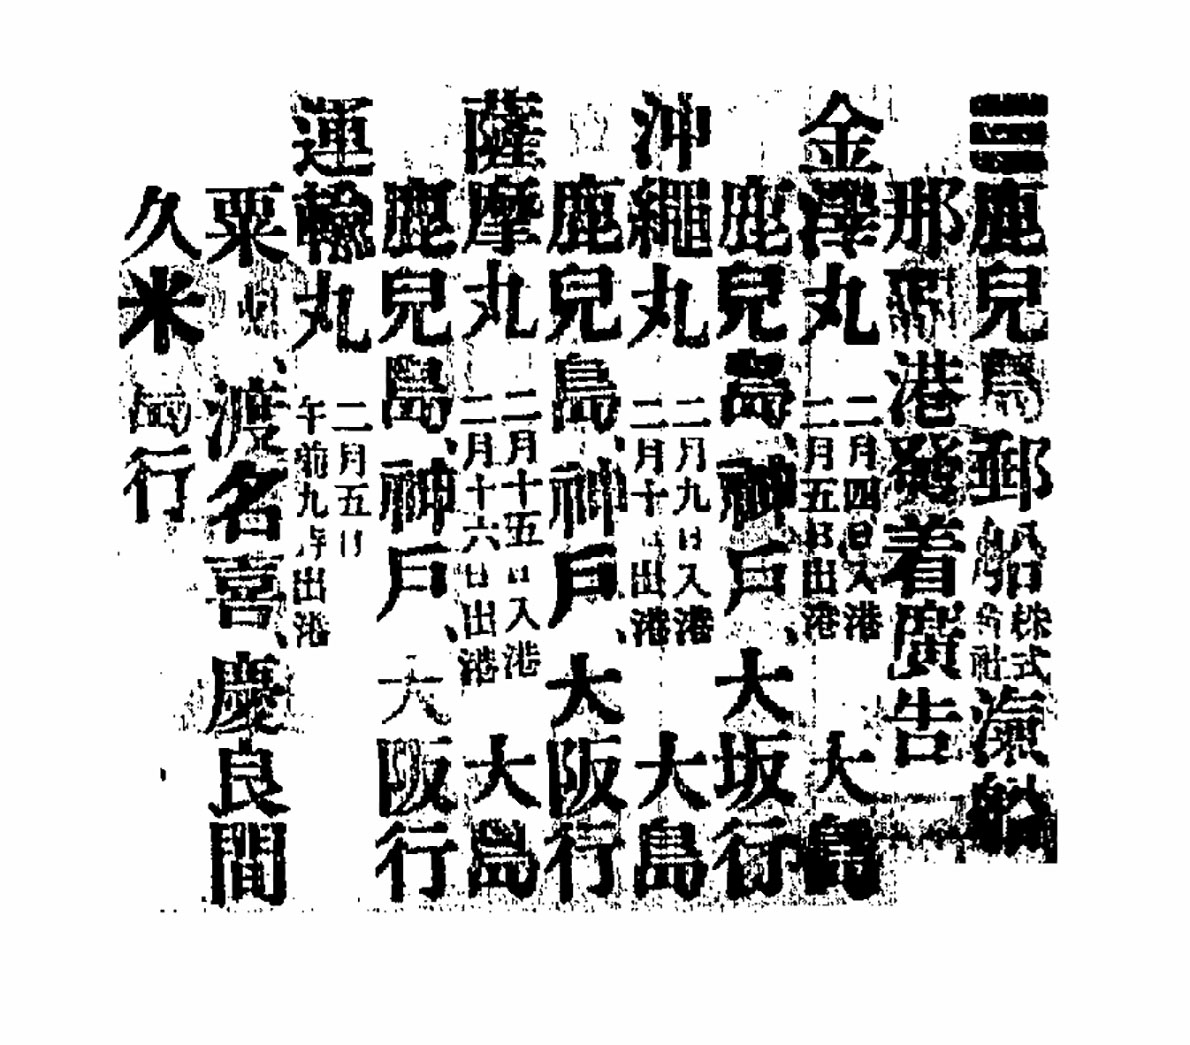 鹿兒島郵船株式會社汽船
那覇港發着廣告
金澤丸 二月四日入港 二月五日出港 大島
鹿兒島、神戶、大坂行
沖繩丸 二月九日入港 二月十日出港 大島
鹿兒島、神戶、大阪行
薩摩丸 二月十五日入港 二月十六日出港 大島
鹿兒島、神戶、大阪行
運輸丸 二月五日 午前九時出港
粟國、渡名喜、慶良間
久米 行